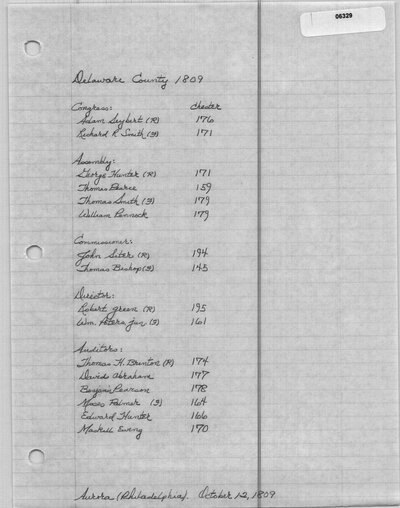 06329
Delaware County 1809
Congress: Chester
Adam Seybert (R) 176
Richard R Smith (F) 171
Assembly:
George Hunter (R) 171
Thomas Pearce 159
Thomas Smith (F) 179
William Pennock 179
Commissioner:
John Siter (R) 194
Thomas Bishop (F) 145
Director:
Robert green (R) 195
Wm. Peters jun (F) 161
Auditors:
Thomas H. Brinton (R) 174
David Abraham 177
Benjamin Pearson 178
Moses Palmer (F) 164
Edward Hunter 166
Maskell Ewing 170
Aurora (Philadelphia). October 12, 1809